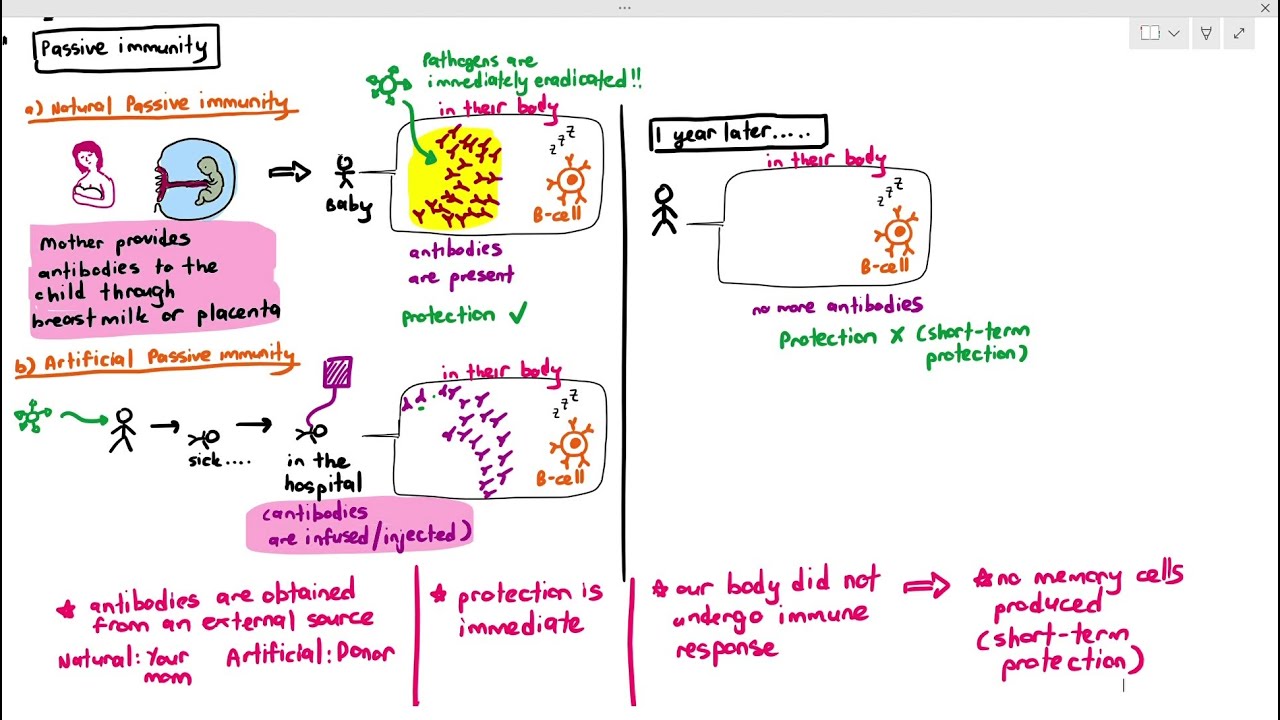 Passive immunity
a) Natural Passive immunity
Pathogens are
immediately eradicated!!
in their body
z z z
Baby
B-cell
Mother provides
antibodies to the
child through
breastmilk or placenta
antibodies
are present
protection ✓
1 year later.....
in their body
z z z
B-cell
no more antibodies
Protection X (short-term
protection)
b) Artificial Passive immunity
in their body
z z z
sick....
in the
hospital
B-cell
(antibodies
are infused/injected)
* antibodies are obtained
from an external source
Natural: Your
mom
Artificial: Donor
* protection is
immediate
* our body did not
undergo immune
response
⇒ * no memory cells
produced
(short-term
protection)